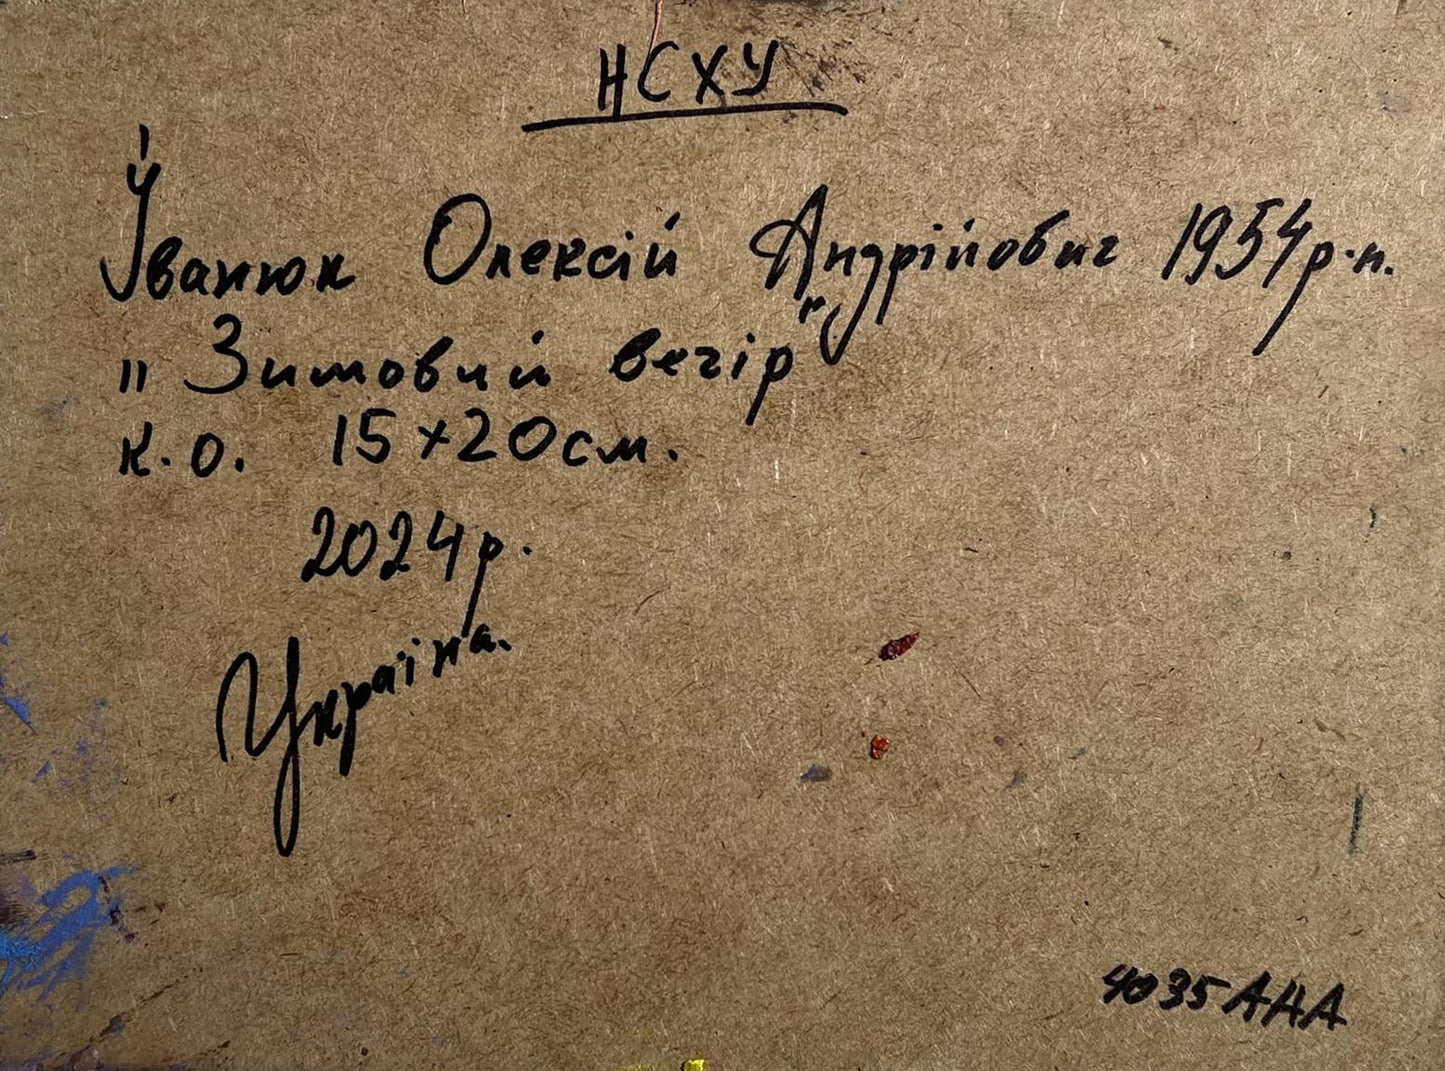 НСХУ
Іванюк Олексій Андрійович 1954 р.н.
"Зимовий вечір"
к.о. 15×20см.
2024р.
Україна.
4035АНА